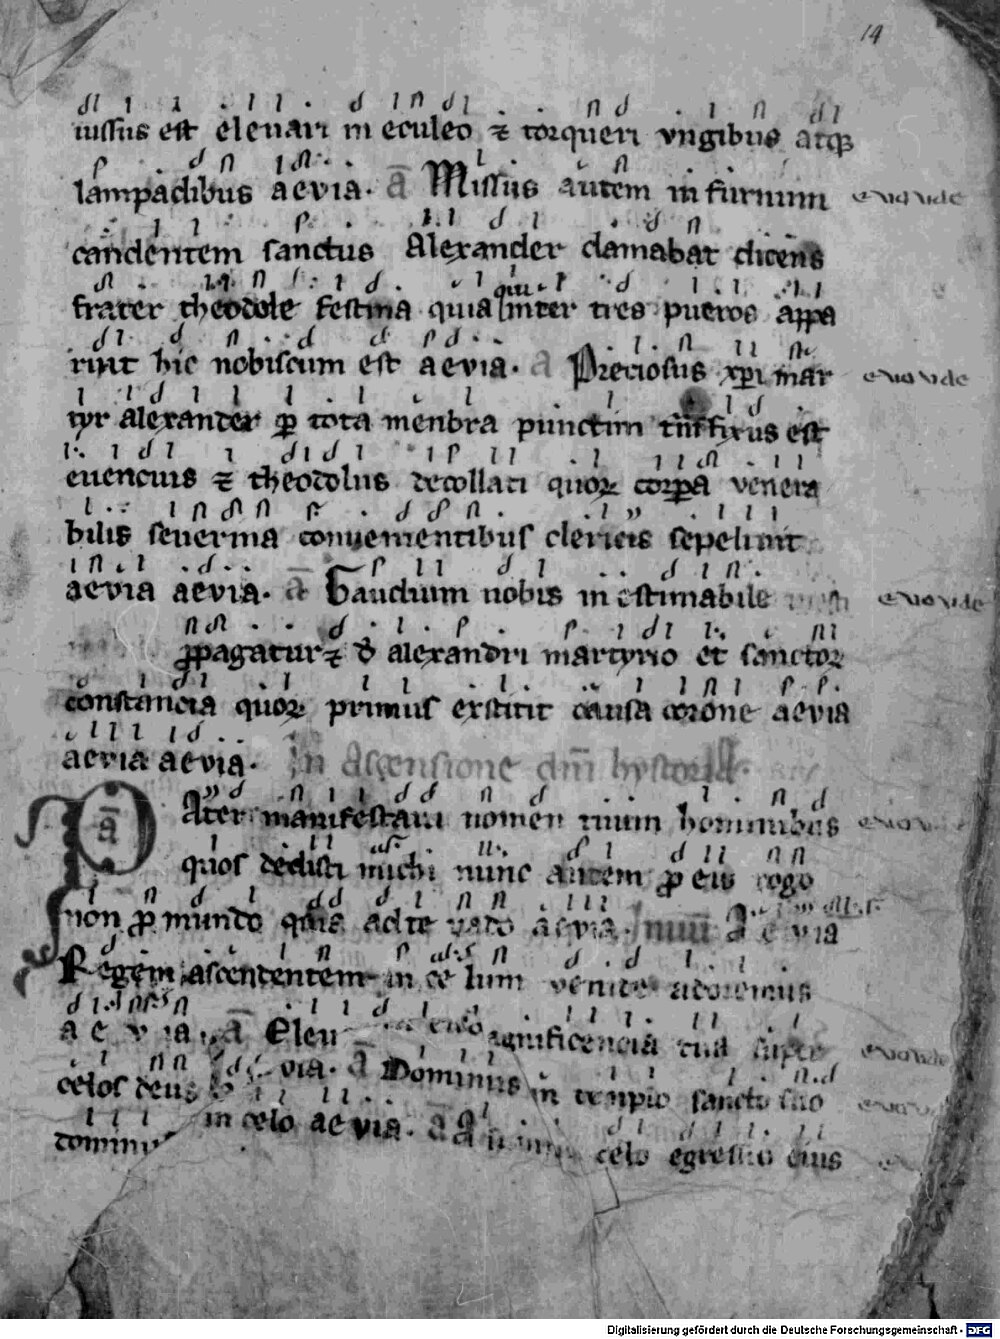 14
iussus est eleuari in eculeo ⁊ torqueri vngibus atqꝫ
lampadibus aevia. a̅ Missus autem in furnum
candentem sanctus Alexander clamabat dicens
frater theodole festina quia qui inter tres pueros appa
ruit hic nobiscum est aevia. a Preciosus xp̅i mar
tyr alexander ꝑ tota menbra punctim tn̅sfixus est
euencius ⁊ theodolus decollati quoꝝ corꝑa venera
bilis seuerina conuenientibus clericis sepeliuit
aevia aevia. a̅ Gaudium nobis inestimabile
ꝓpagatur ⁊ d̅ alexandri martyrio et sanctoꝝ
constancia quoꝝ primus exstitit causa corone aevia
aevia aevia. In Ascensione dn̅i hystoria.
a̅ Pater manifestaui nomen tuum hominibus
quos dedisti michi nunc autem ꝓ eis rogo
non ꝓ mundo quia ad te vado aevia. Inuit̅ A e via
Regem ascendentem in celum venite adoremus
a e v ia. a̅ Eleu agnificencia tua super
celos deus via. a̅ Dominus in templo sancto suo
dominus in celo aevia. a̅ A celo egressio eius
Digitalisierung gefördert durch die Deutsche Forschungsgemeinschaft - DFG